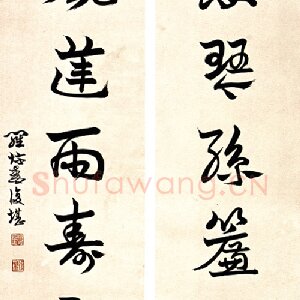 琴孫簾
蓮雨壽
羅惇㬊復堪
Shufawang.CN